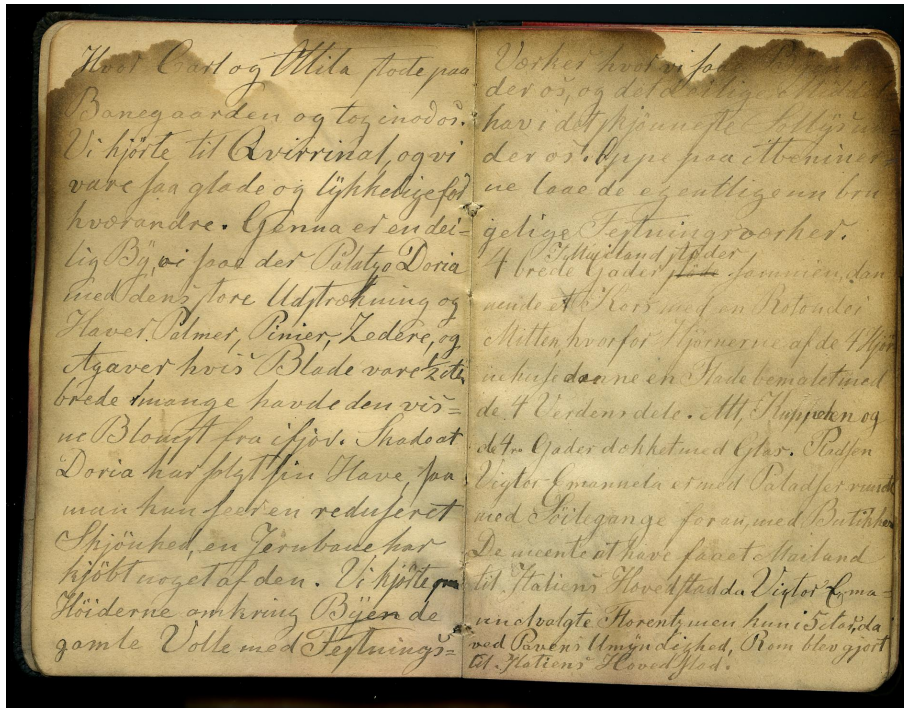 Hvor Carl og Ottila stode paa
Banegaarden og tog imod os.
Vi kjørte til Qvirrinal, og vi
vare saa glade og lÿkkelige for
hværandre. Genua er en dei=
lig Bÿ, vi saae der Palatzo Doria
med dens store Udstrækning og
Haver. Palmer, Pinier, Zedere, og
Agaver hvis Blade vare 1/2 Alen
brede mange havde den vis=
ne Blomst fra ifjor. Skade at
Doria har solgt sin Have saa
man kun seer en reduseret
Skjönhed, en Jernbane har
kjöbt noget af den. Vi kjørte paa
Höiderne omkring Bÿen de
gamle Volle med Festnings=
Værker hvor vi saae
der os, og det deilige Middel
hav i det skjønneste
der os. Oppe paa Abeniner=
ne laae de egentlige nu bru
gelige Festningsværker.
I Mailand støder
4 brede Gader sammen, dan
nende et Kors med en Rotonde i
Mitten, hvorfor Hjørnerne af de 4 Hjör
nehuse danne en Flade bemalet med
de 4 Verdensdele. Alt, Kuppelen og
de 4re Gader dækket med Glas. Pladsen
Vigtor Emanuela er med Paladser rundt
med Söilegange foran, med Butikker
De meente at have faaet Mailand
til Italiens Hovedstad da Vigtor Ema=
nuel valgte Florentz men kun i 5 Aar, da
ved Pavens Umÿndighed, Rom blev gjort
til Italiens Hovedstad.